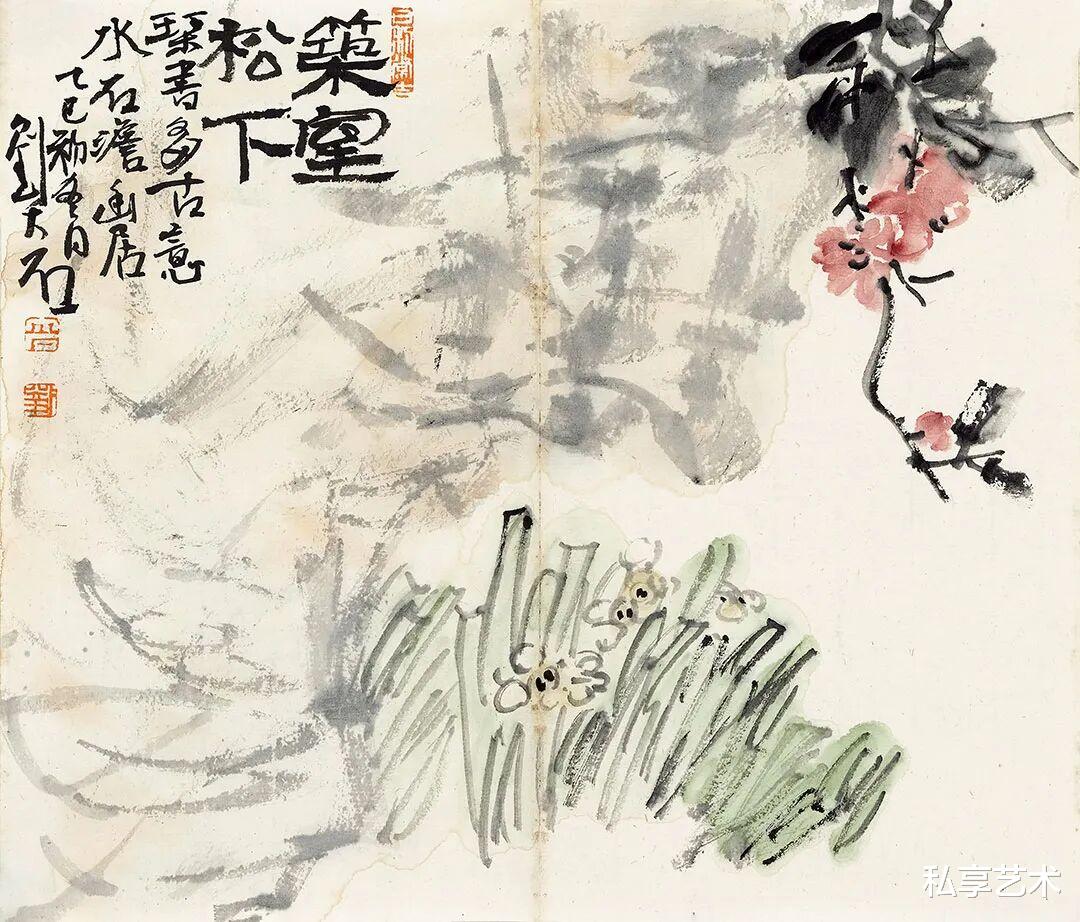 築室
松下
琹書多古意
水石澹幽居
乙巳初冬日
劉大石
私享艺术